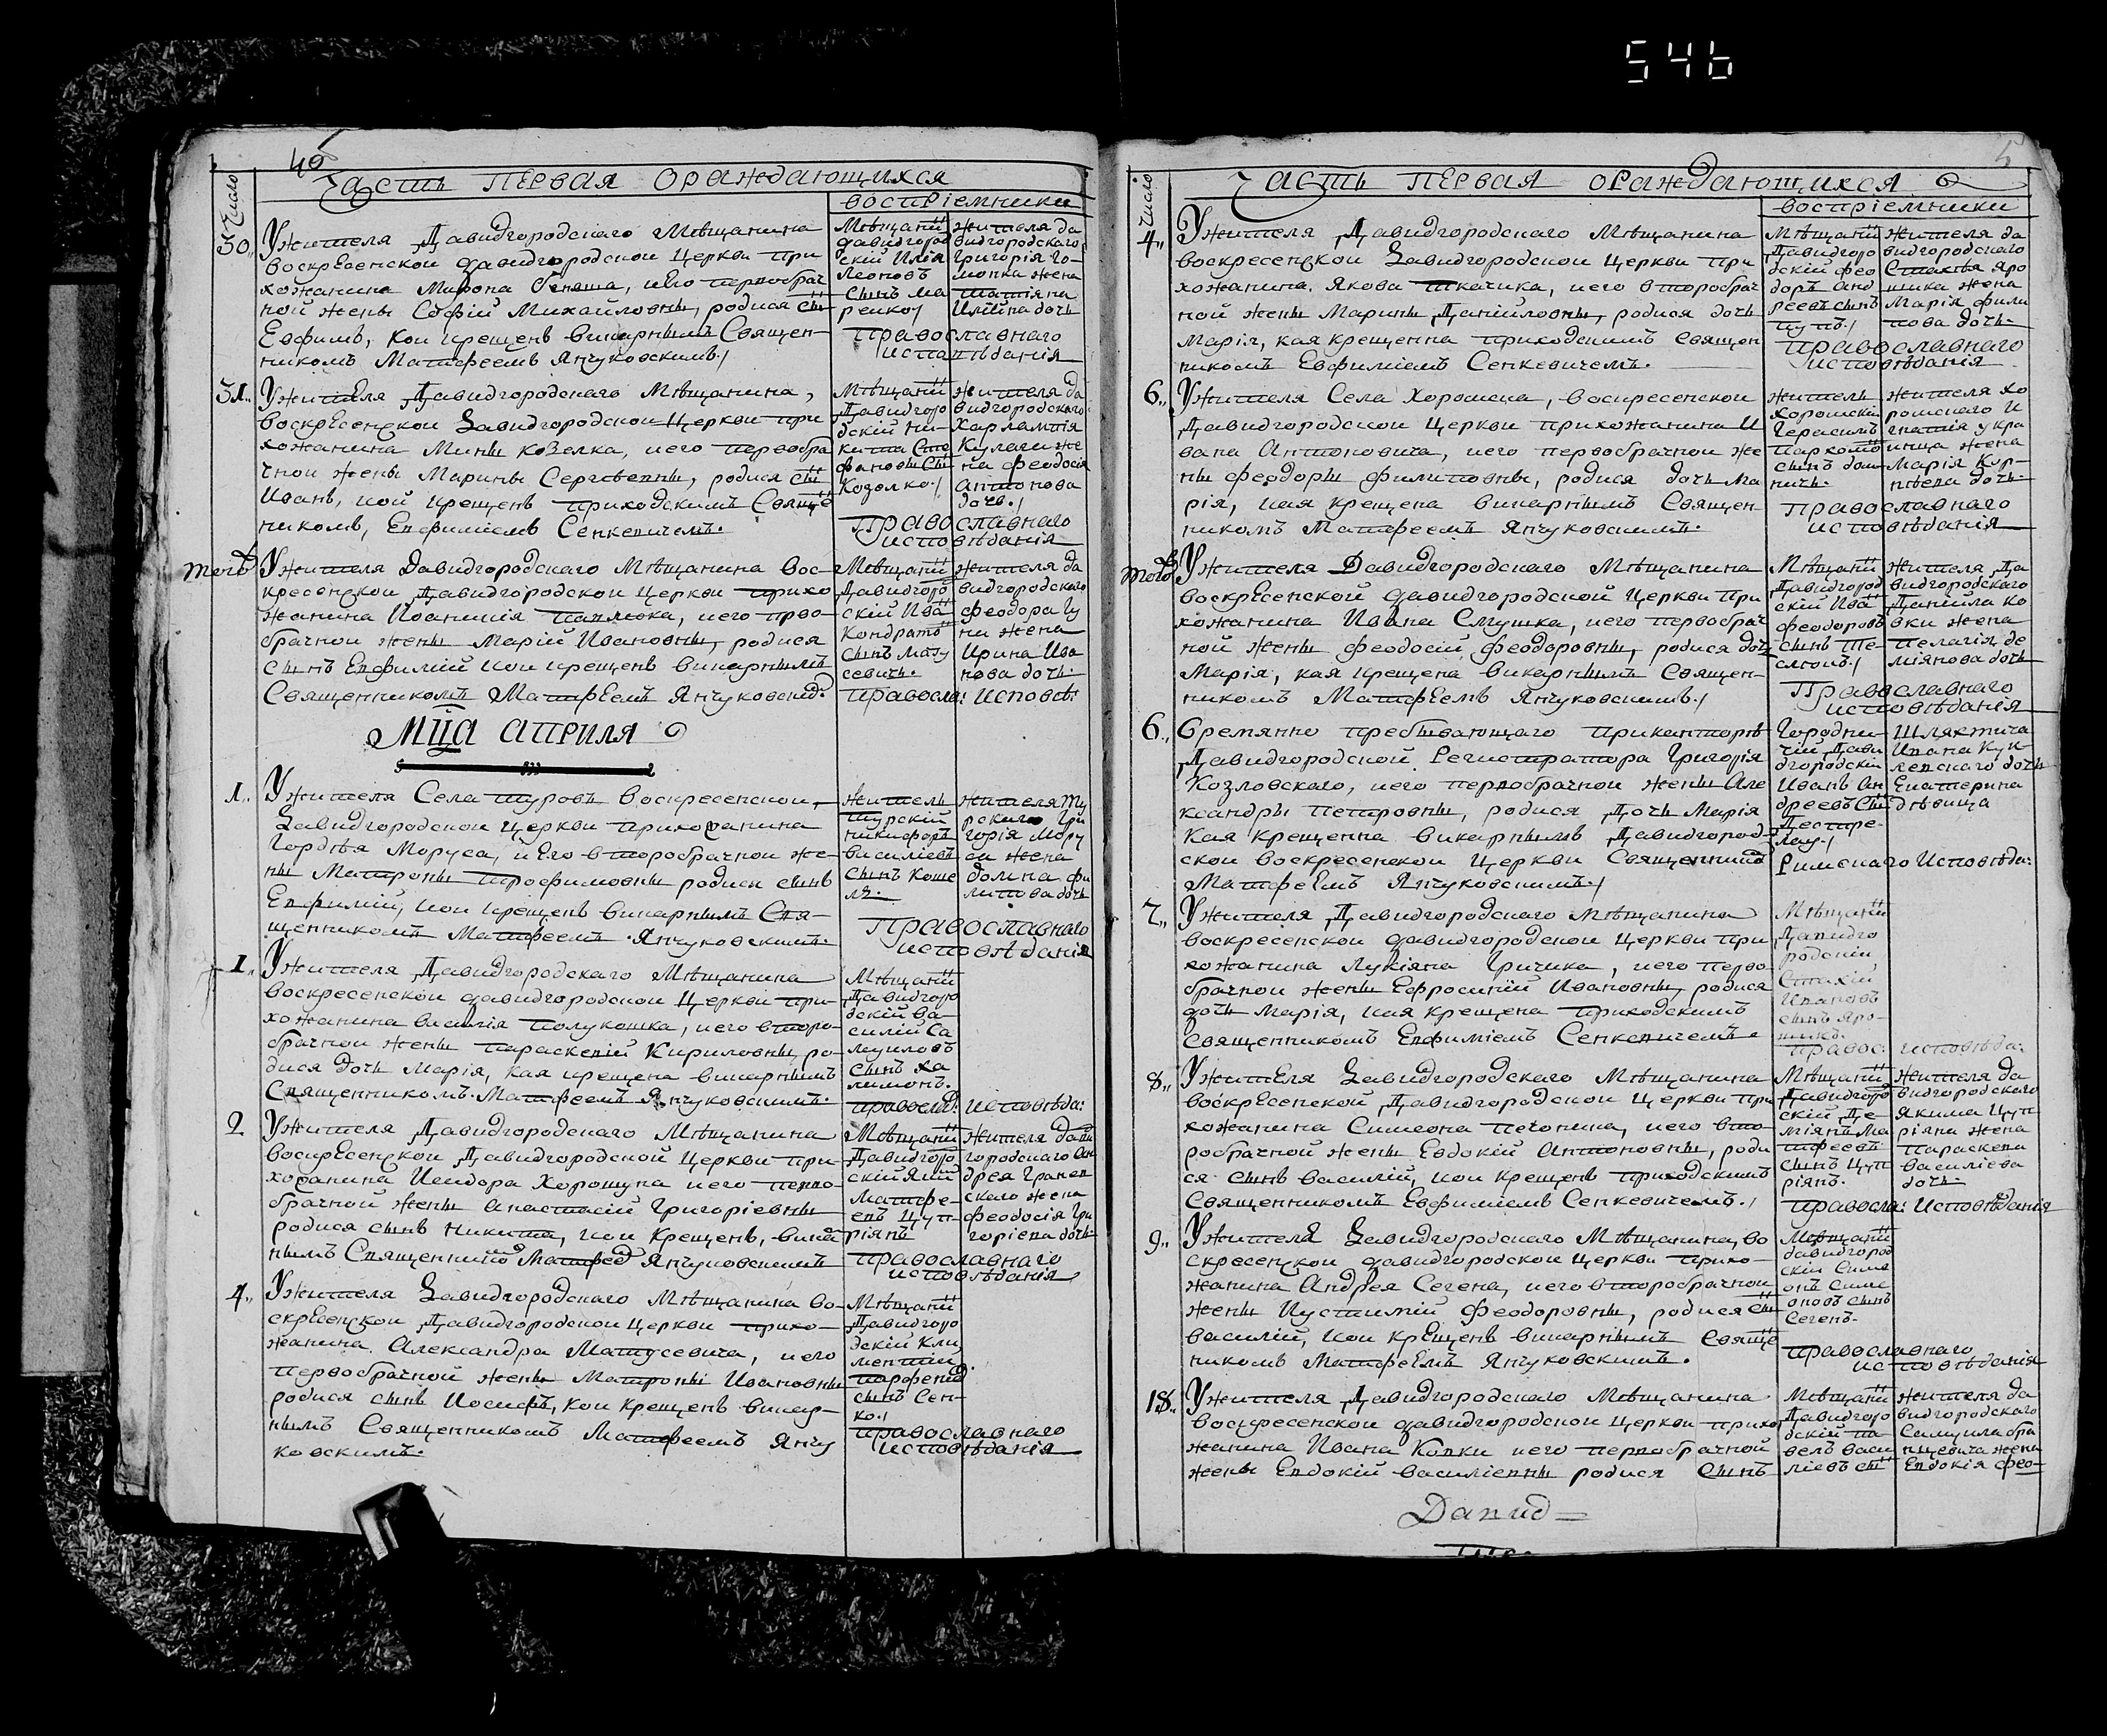 546
Часть первая о раждающихся
Число
воспріемники
30,,
Ужителя Давидгородскаго Мѣщанина
воскресенской давидгородской Церкви при
хожанина Мирона, иего первобрач
ной жены Софіи Михайловны, родися сы
Евфимъ, кои крещенъ викарнымъ Священ-
никомъ Матфеемъ Янчуковскимъ
Мѣщани
давидгоро
дскій Илія
Леоновъ
сынъ Ма
рейко
жителя Да
видгородскаго
Григорія Го-
жена
татіяна
дочь
православнаго
исповѣданія
31,,
Ужителя Давидгородскаго Мѣщанина,
воскресенской Давидгородской Церкви при
хожанина Мины Козелка, иего первобра
чной жены Марины Сергѣевны, родися сы
Иванъ, кой крещенъ приходскимъ Свяще
никомъ, Евфиміемъ Сенкевичемъ.
Мѣщани
Давидгоро
дскій Ни-
кита Сте
фановъ сы
Козолко
жителя Да
видгородскаго
Харлампія
Кулаги же
на феодосія
антонова
дочь
Православнаго
исповѣданія
того
Ужителя Давидгородскаго Мѣщанина вос-
кресенской Давидгородской Церкви прихо
жанина иего прво-
брачной жены Маріи Ивановны, родися
сынъ Евфимій кои крещенъ викарнымъ
Священникомъ Матфеемъ Янчуковски
Мѣщани
Давидгоро
скій Ива
Кондрато
сынъ Мату
севичь.
жителя да
видгородскаго
феодора
на жена
Ирина Ива
нова дочь
правосла: исповѣ:
Мца априля
1,,
Ужителя Села туровъ воскресенской,
Давидгородской Церкви прихожанина
Гордѣя Моруса, иего второбрачной же-
ны Матроны трофимовны родися сынъ
Евфимій, кои крещенъ викарнымъ Свя-
щенникомъ Матфеемъ Янчуковскимъ.
житель
турскій
никифоръ
василіевъ
сынъ Коше
жителя ту
рскаго Гри
горія Мору
са жена
домна фи
липова дочь
Православнаго
исповѣданія
1,,
Ужителя Давидгородскаго Мѣщанина
воскресенской давидгородской Церкви при-
хожанина василія полукошка, иего второ-
брачной жены параскевіи Кириловны, ро-
дися дочь Марія, кая крещена викарнымъ
Священникомъ Матфеемъ Янчуковскимъ.
Мѣщани
Давидгоро
дскій ва-
силій Са
муиловъ
сынъ ха
лимонъ.
правосла: исповѣда:
2
Ужителя Давидгородскаго Мѣщанина
воскресенской Давидгородской Церкви при-
хожанина Исидора Хорошуна иего перво-
брачной жены анастасіи Григоріевны
родися сынъ Никита, кои крещенъ, вика
нымъ Священнико Матфее Янчуковскимъ
Мѣщани
Давидгоро
скій Яки
Матфе-
евъ Цуп-
ріянъ
жителя Дави
городскаго Ан
дрея Гранев
скаго жена
феодосія Гри
горіева дочь
православнаго
исповѣданія
4,,
Ужителя Давидгородскаго Мѣщанина во-
скресенской Давидгородской Церкви прихо-
жанина Александра Матусевича, иего
первобрачной жены Матроны Ивановны
родися сынъ Иосифъ, кои крещенъ викар-
нымъ Священникомъ Матфеемъ Янчу
ковскимъ.
Мѣщани
Давидгоро
дскій Кли
ментій
парфено
сынъ Сен-
ко
православнаго
исповѣданія
5
Часть первая о раждающихся
Число
воспріемники
4,,
Ужителя Давидгородскаго Мѣщанина
воскресенской Давидгородской Церкви при
хожанина Якова ткачика, иего второбрач
ной жены Марины Даніиловны, родися дочь
Марія, кая крещенна приходскимъ священ
никомъ Евфиміемъ Сенкевичемъ.
Мѣщани
Давидгоро
дскій фео
доръ анд
реевъ сынъ
жителя да
видгородскаго
Стахѣя Яро
шика жена
Марія фили
пова дочь
православнаго
исповѣданія
6,,
Ужителя Села Хоромска, воскресенской
Давидгородской Церкви прихожанина И
вана Антоновича, иего первобрачной же
ны феодоры филиповны, родися дочь Ма
рія, кая крещена викарнымъ Священ
никомъ Матфеемъ Янчуковскимъ.
житель
хоромскій
Герасимъ
пархомо
сынъ дом-
ничь.
жителя хо
ромскаго И
гнатія укра
инца жена
Марія Кор-
нѣева дочь
православнаго
исповѣданія
того
Ужителя Давидгородскаго Мѣщанина
воскресенской давидгородской Церкви при
хожанина Ивана Смушка, иего первобрач
ной жены феодосіи феодоровны, родися дочь
Марія, кая крещена викарнымъ Священ-
никомъ Матфеемъ Янчуковскимъ
Мѣщани
Давидгород
скій Ива
феодоровъ
сынъ
жителя Да
видгородскаго
Даніила Ко
вки жена
пелагія де
міянова дочь
Православнаго
исповѣданія
6,,
временно пребывающаго приканторѣ
Давидгородской Регистратора Григорія
Козловскаго, иего первобрачной жены Але
ксандры петровны, родися дочь Марія
кая крещенна викарнымъ Давидгород-
ской воскресенской Церкви Священнико
Матфеемъ Янчуковскимъ
Городни-
чій Дави
дгородскій
Иванъ Ан
дреевъ сы
Шляхтича
Ивана Кук-
левскаго дочь
Екатерина
дѣвица
Римскаго Исповѣда:
7,,
Ужителя Давидгородскаго Мѣщанина
воскресенской давидгородской Церкви при
хожанина Лукіяна Гричика, иего перво-
брачной жены Ефросиніи Ивановны, родися
дочь Марія, кая крещена приходскимъ
Священникомъ Евфиміемъ Сенкевичемъ
Мѣщани
Давидго
родскій
Стахій
Ивановъ
сынъ Яро-
шикъ.
правос: исповѣда:
8,,
Ужителя Давидгородскаго Мѣщанина
воскресенской Давидгородской Церкви при
хожанина Симеона печонка, иего вто-
робрачной жены Евдокіи Антоновны, роди
ся сынъ василій, кои крещенъ приходскимъ
Священникомъ Евфиміемъ Сенкевичемъ.
Мѣщани
Давидгоро
скій Де-
міянъ Ма
тфеевъ
сынъ Цуп
ріянъ.
жителя да
видгородскаго
якима Цуп
ріяна жена
параскева
василіева
дочь.
правосла: Исповѣданія
9,,
Ужителя Давидгородскаго Мѣщанина, во
скресенской давидгородской Церкви прихо-
жанина Андрея Сегена, иего второбрачной
жены Иустиміи феодоровны, родися сы
василій, кои крещенъ викарнымъ Свяще
никомъ Матфеемъ Янчуковскимъ.
Мѣщани
давидгород
скій Симе
онъ Симе
оновъ сынъ
Сегенъ.
православнаго
исповѣданія
18,,
Ужителя Давидгородскаго Мѣщанина
воскресенской давидгородской Церкви прихо
жанина Ивана Ковки иего первобрачной
жены Евдокіи василіевны родися сынъ
Мѣщани
Давидгоро
дскій па
велъ васи
ліевъ сы
жителя да
видгородскаго
Самуила бра
нцевича жена
Евдокія фео-
Давид